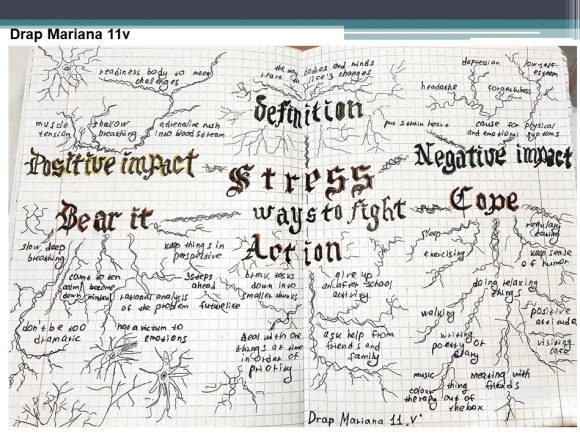 Drap Mariana 11v
readiness body to meet
challenges
the way bodies and minds
react to life's changes
depression
low self-
esteem
headache
forgetfulness
definition
muscle
tension
shallow
breathing
adrenaline rush
into blood stream
put strain heart
cause for physical
and emotional symptoms
Positive impact
Stress
Negative impact
Bear it
ways to fight
Cope
Action
slow deep
breathing
keep things in
perspective
sleep
regulary
eating
count to ten
calm
down
become
mindful
3 steps
ahead
rational analysis
of the problem
futurelife
break tasks
down into
smaller chunks
give up
on after school
activity
exercising
keep sense
of human
doing relaxing
things
don't be too
dramatic
not a victum to
emotions
deal with one
things at time
in order of
priority
ask help from
friends and
family
walking
positive
attitude
writing
poetry or
diary
visiting
cafe
music
colour
therapy
thing
out of
the box
meeting with
friends
Drap Mariana 11.v.